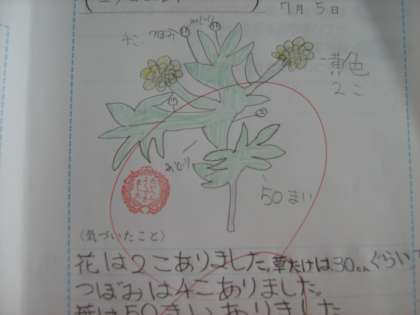 7月5日
4こ つぼみ
みどり
黄色
2こ
みどり
50まい
〈気づいたこと〉
花は2こありました。草たけは30cmぐらい
つぼみは4こありました。
葉は50まいありました